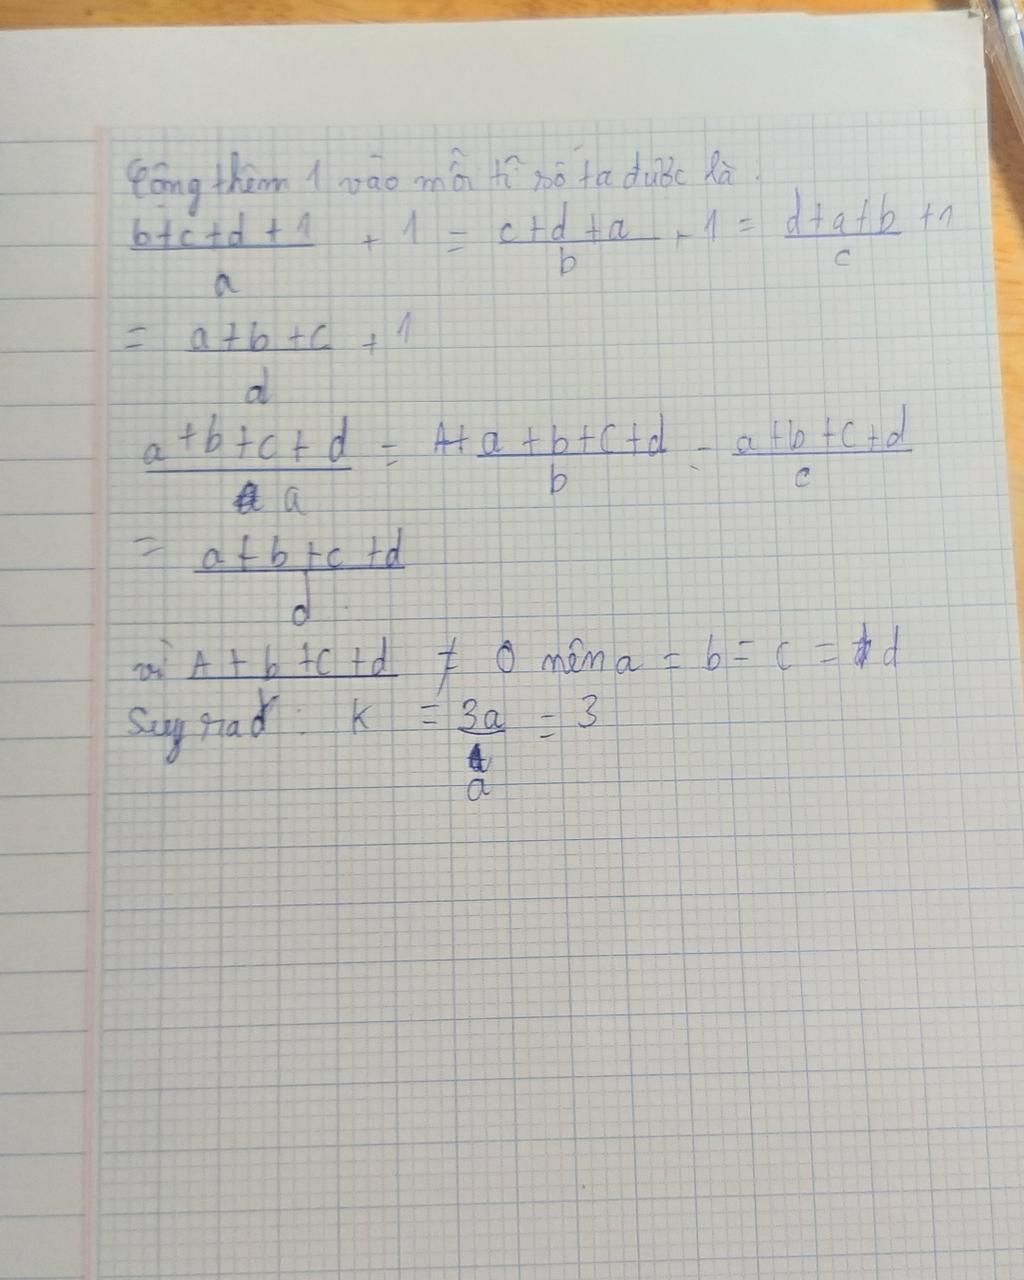 Cộng thêm 1 vào mỗi tỉ số ta được là :
b+c+d+1/a + 1 = c+d+a/b + 1 = d+a+b/c +1
= a+b+c/d + 1
a+b+c+d/a = A+a+b+c+d/b = a+b+c+d/c
= a+b+c+d/d
vì A+b+c+d ≠ 0 nên a = b = c = d
Suy ra : k = 3a/a = 3